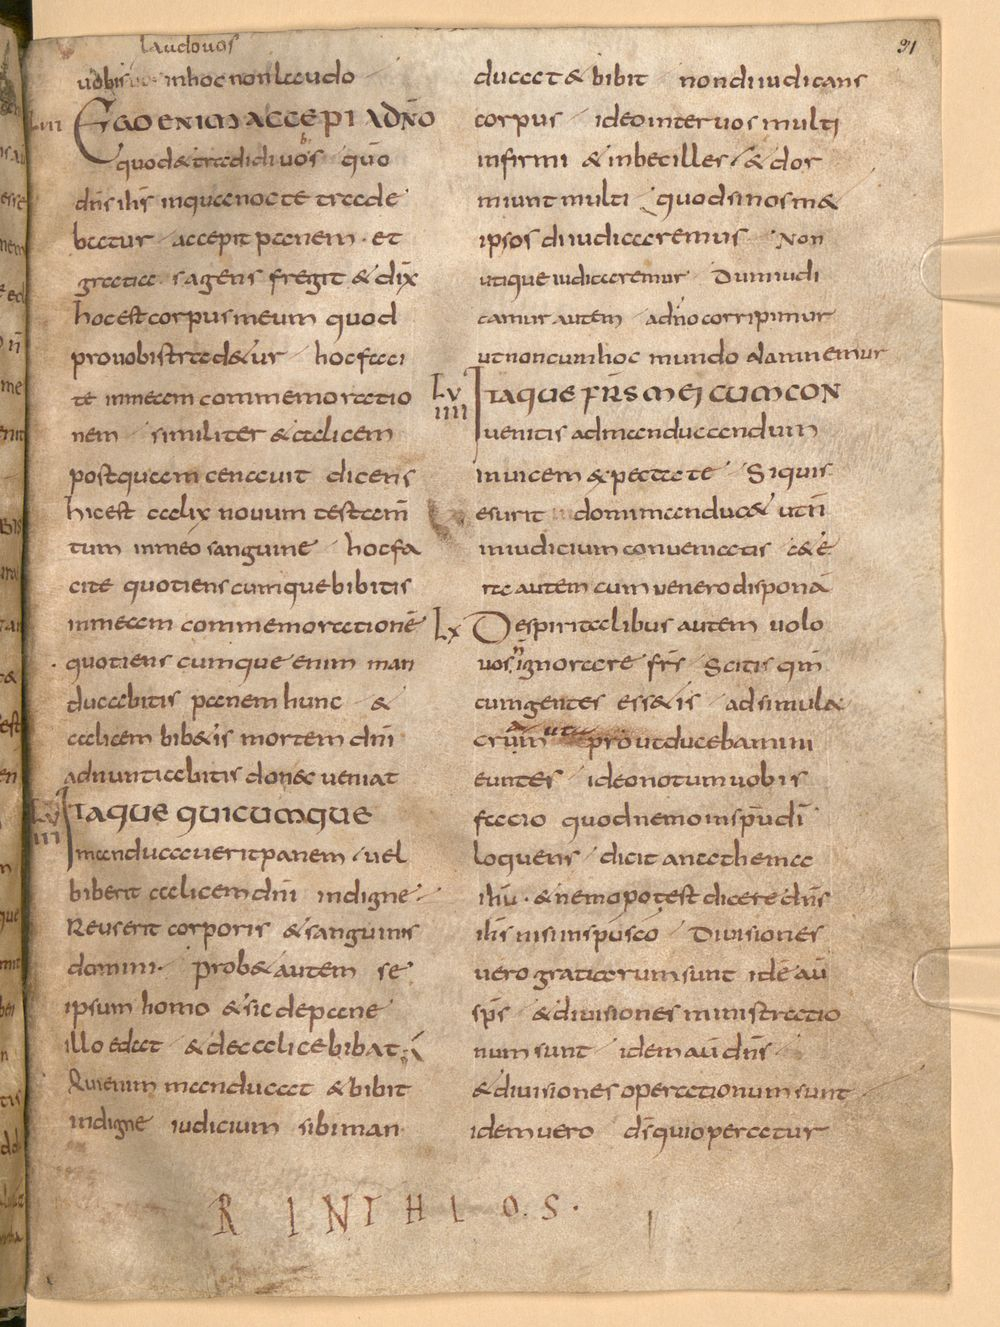 91
laudo uos
uobis in hoc non laudo
LVII EGO ENIM ACCEPI A DÑO
quod & tradidi uobis qūo
dn̄s ih̄s in qua nocte trade
batur accepit panem · et
gratias agens fregit & dix̄
hoc est corpus meum quod
pro uobis traditur hoc faci
te in meam commemoratio
nem similiter & calicem
postquam cenauit dicens
hic est calix nouum testam̄
tum in meo sanguine hoc fa
cite quotienscumque bibitis
in meam commemorationē
quotienscumque enim man
ducabitis panem hunc &
calicem bib&is mortem dn̄i
adnuntiabitis donec ueniat
LVIII ITAQUE QUICUMQUE
manducauerit panem uel
biberit calicem dn̄i indigne
Reus erit corporis & sanguinis
domini · prob& autem se
ipsum homo & sic de pane
illo edat & de calice bibat
Qui enim manducat & bibit
indigne iudicium sibi man
ducat & bibit non diiudicans
corpus ideo inter uos multi
infirmi & inbecilles & dor
miunt multi quod si nosm&
ipsos diiudicaremus Non
utique iudicaremur Dum iudi
camur autem a dn̄o corripimur
ut non cum hoc mundo damnemur
LVIIII ITAQUE FR̄S MEI CUM CON
uenitis ad manducandum
inuicem expectate Si quis
esurit domi manduc& ut n̄
in iudicium conueniatis c&e
ra autem cum uenero disponā
LX De spiritalibus autem uolo
uos ñ ignorare fr̄s Scitis qm̄
cum gentes ess&is ad simula
crum prout ducebamini
euntes ideo notum uobis
facio quod nemo in sp̄u dī
loquens dicit anathema
ih̄u · & nemo potest dicere dn̄s
ih̄s nisi in sp̄u sc̄o Diuisiones
uero gratiarum sunt idē aū
sp̄s & diuisiones ministratio
num sunt idem aū dn̄s
& diuisiones operationum sunt
idem uero ds̄ qui operatur
R I N T H I O S ·